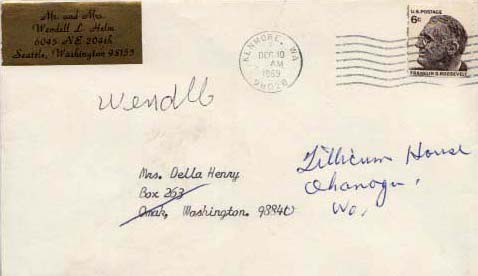 Mr. and Mrs.
Wendell L. Helm
6045 NE 204th
Seattle, Washington 98155
KENMORE, WA
DEC 10
AM
1969
98028
U.S. POSTAGE
6¢
FRANKLIN D. ROOSEVELT
Wendell
Mrs. Della Henry
Box 263
Omak, Washington. 98840
Tillicum House
Okanogan,
Wa,